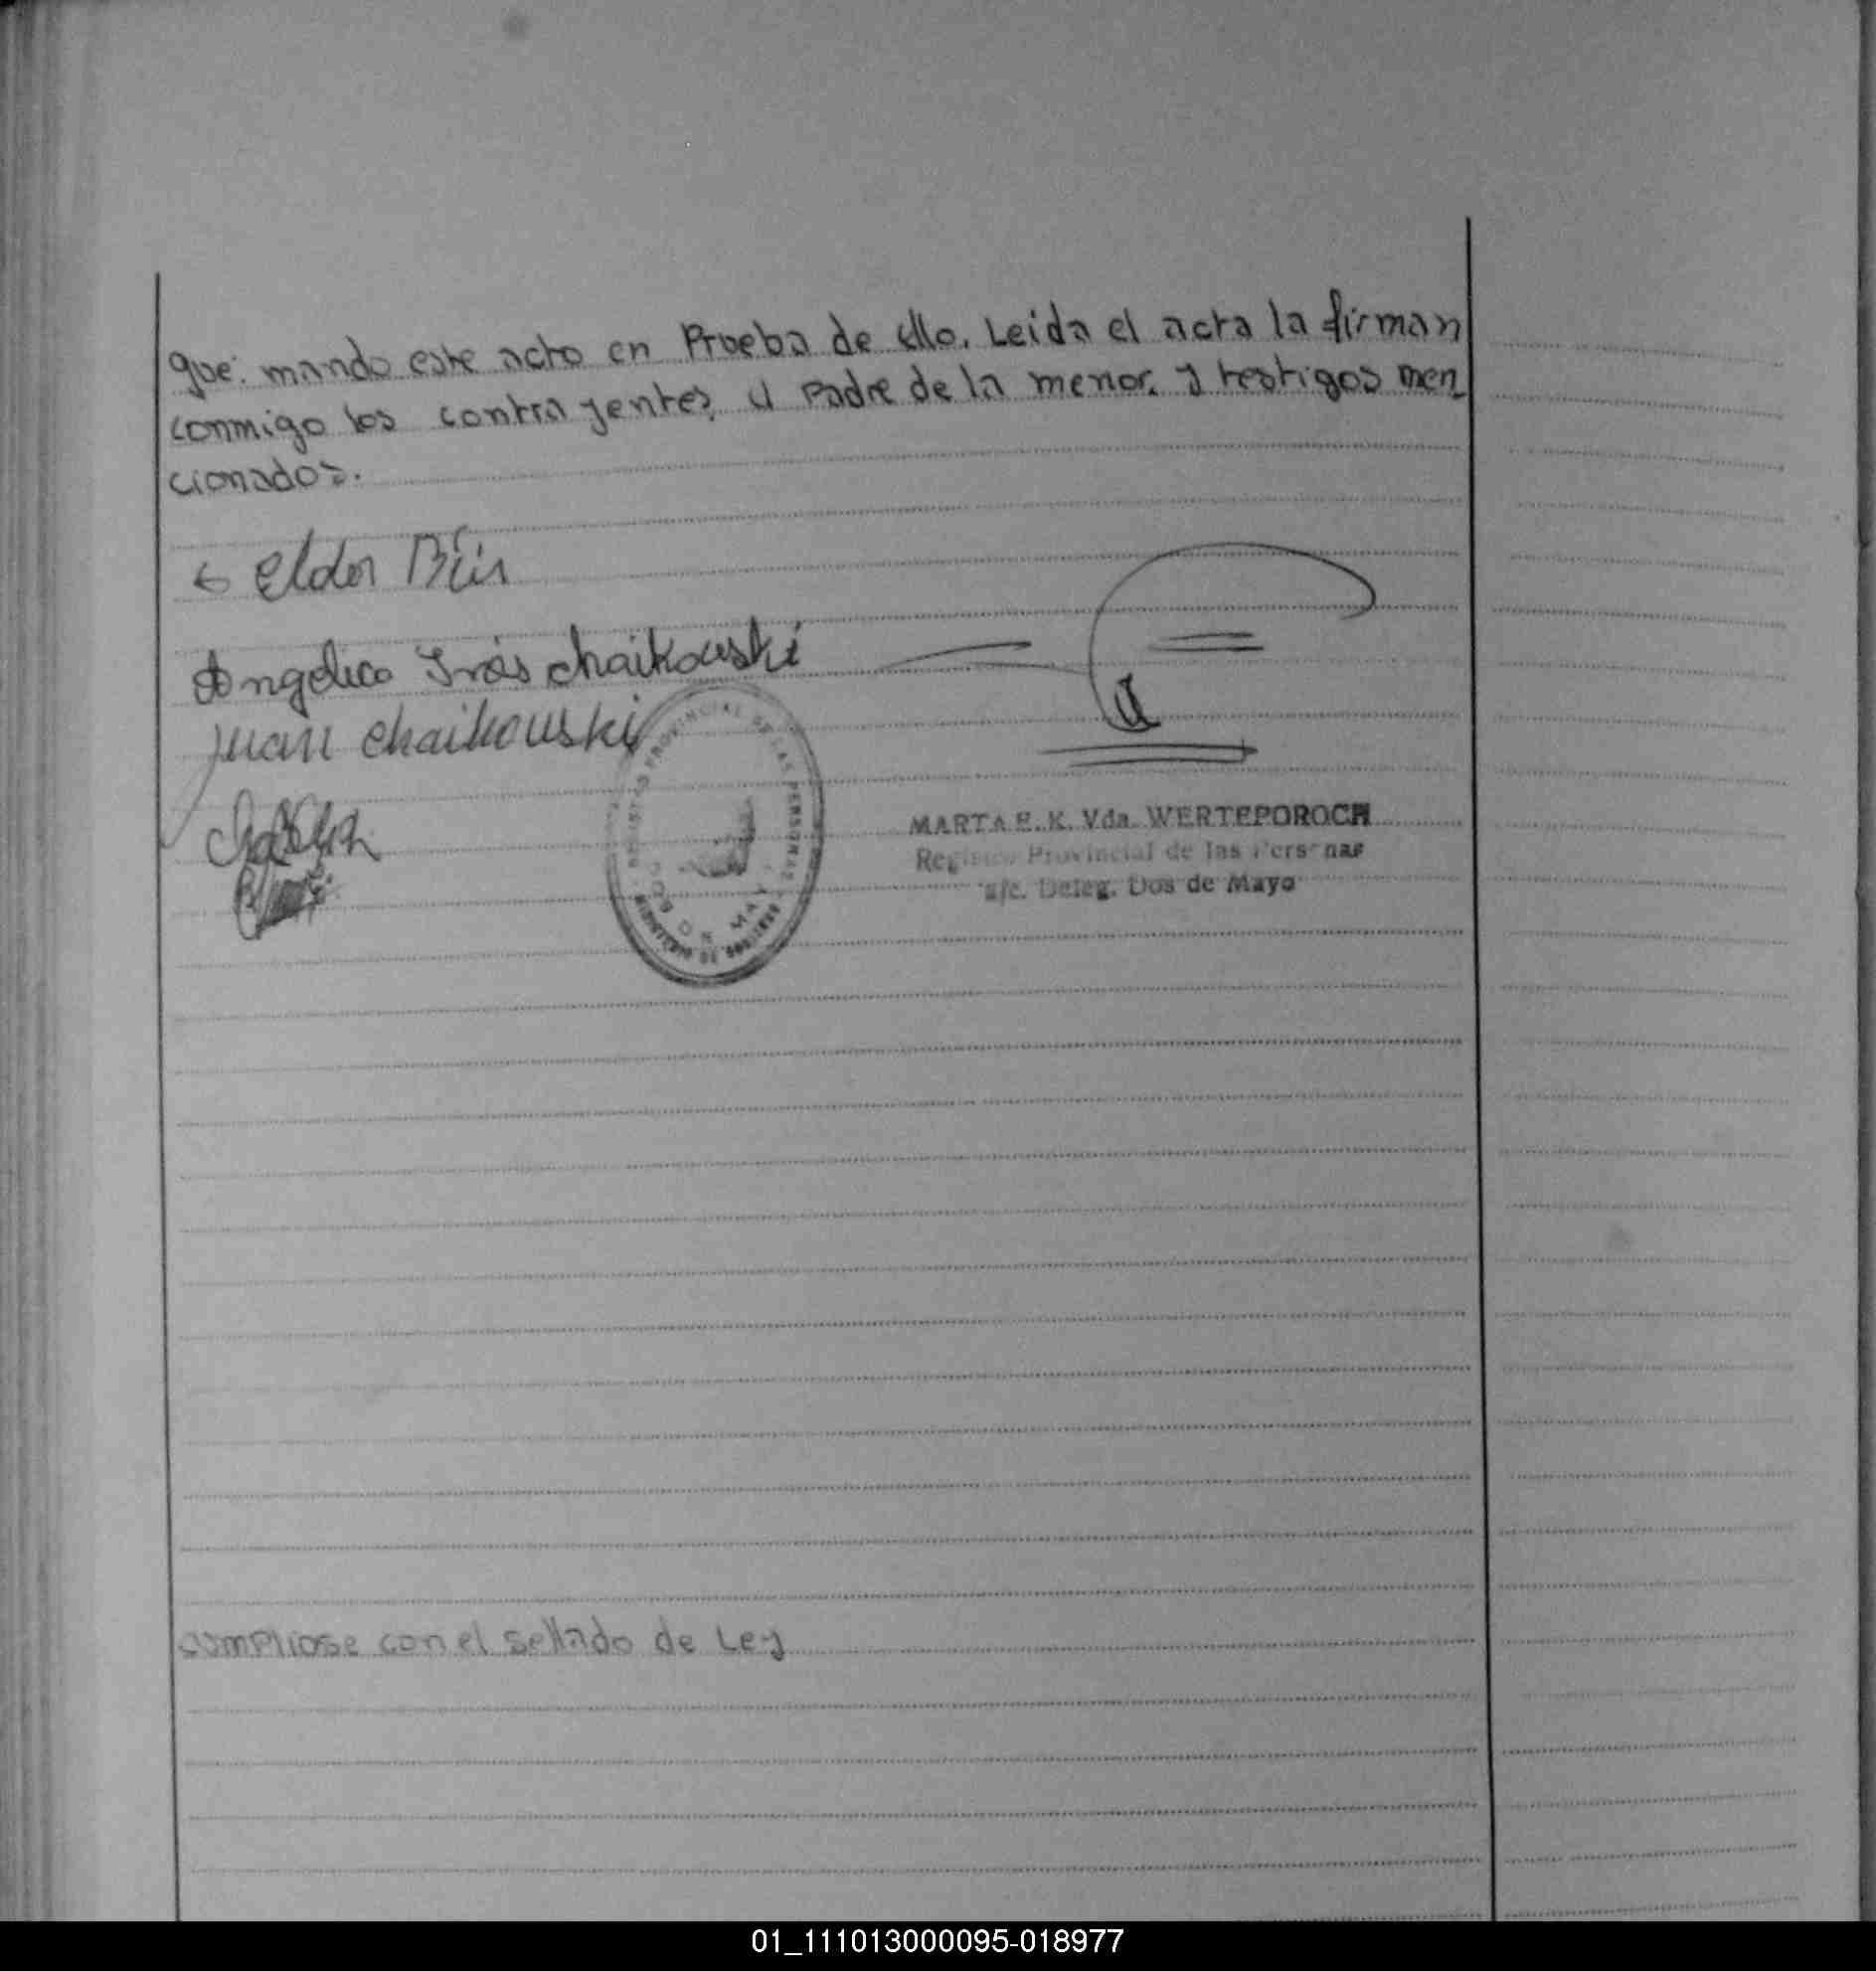 que. mando este acto en Prueba de ello. Leida el acta la firman
conmigo los contrayentes, el Padre de la menor. y testigos men
cionados.
Eldor
Angelica Inés Chaikouski
Juan Chaikouski
REGISTRO PROVINCIAL DE LAS PERSONAS
DOS DE MAYO
MINISTERIO DE GOBIERNO
MARTA E. K. Vda. WERTEPOROCH
Registro Provincial de las Personas
a/c. Deleg. Dos de Mayo
cumpliose con el sellado de Ley
01_111013000095-018977